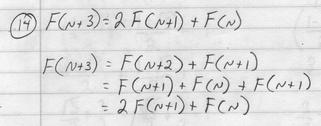 14 F(N+3) = 2 F(N+1) + F(N)
F(N+3) = F(N+2) + F(N+1)
= F(N+1) + F(N) + F(N+1)
= 2 F(N+1) + F(N)